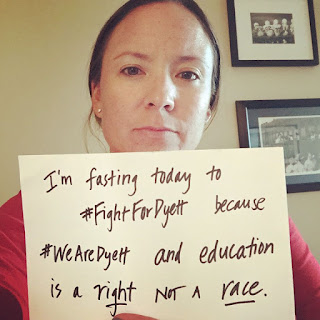 I'm fasting today to
#FightForDyett because
#WeAreDyett and education
is a right NOT A race.